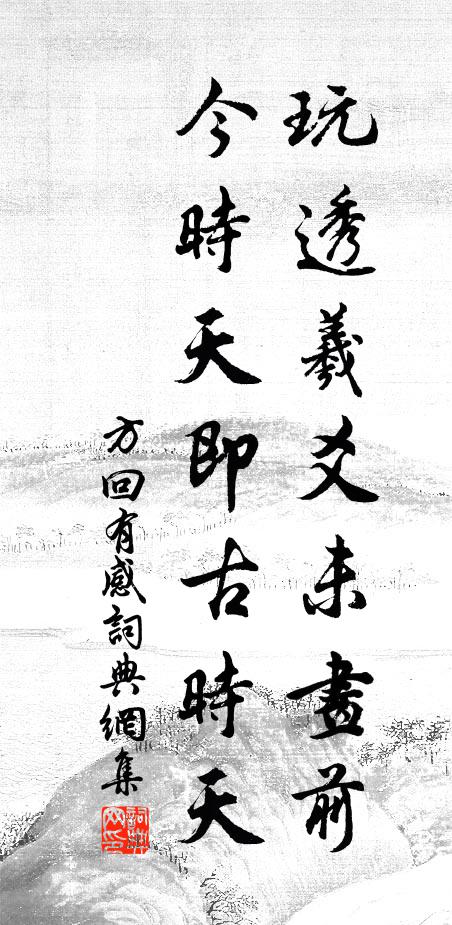 玩透羲爻未畫前
今時天即古時天
方回有感詞典網集
詞典网印